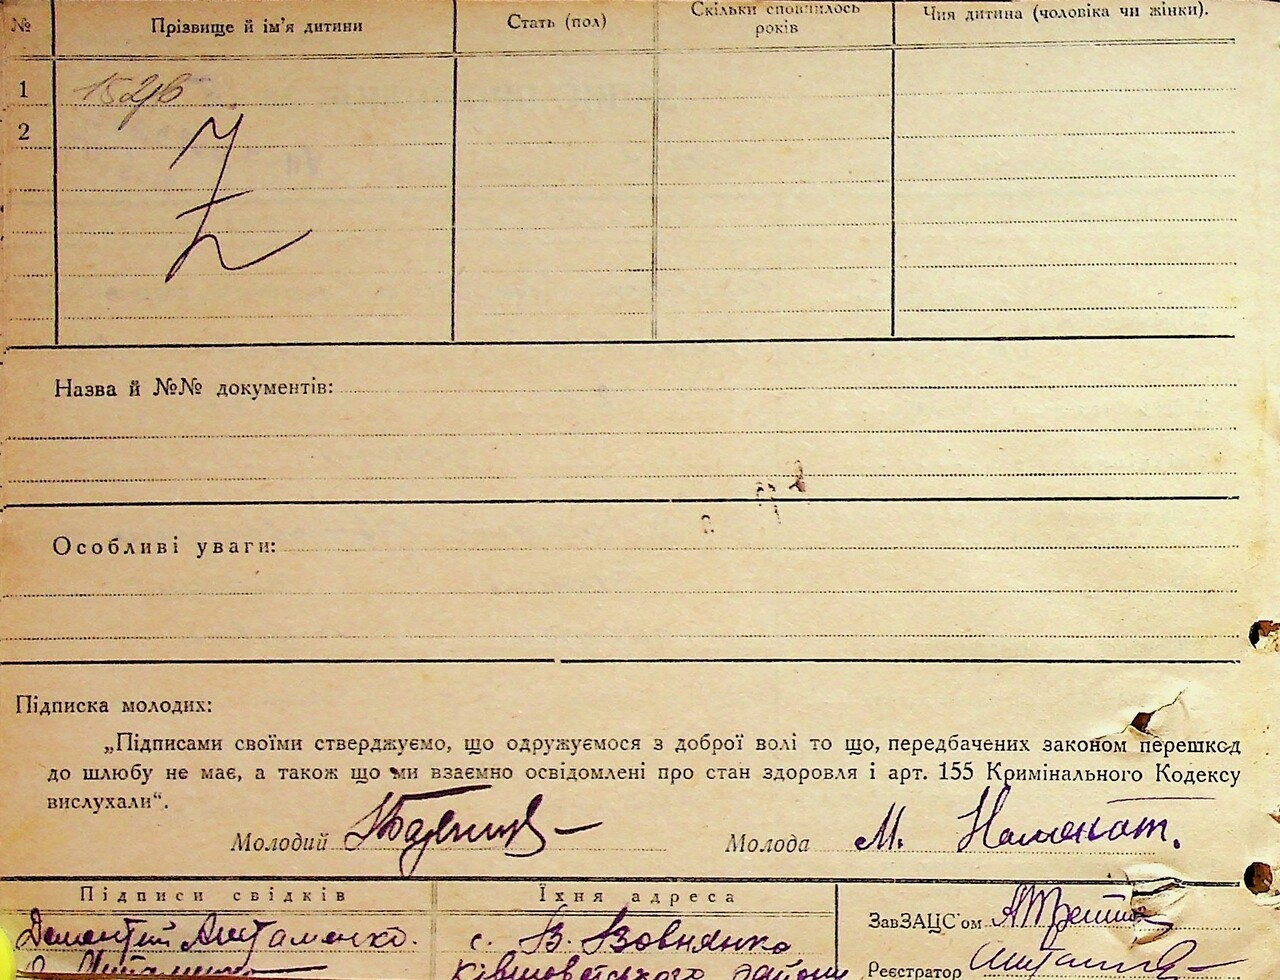 № Прізвище й ім'я дитини Стать (пол) Скільки сповнилось років Чия дитина (чоловіка чи жінки).
1
2
Назва й №№ документів:
Особливі уваги:
Підписка молодих:
„Підписами своїми стверджуємо, що одружуємося з доброї волі то що, передбачених законом перешкод
до шлюбу не має, а також що ми взаємно освідомлені про стан здоровля і арт. 155 Кримінального Кодексу
вислухали“.
Молодий Молода М.
Підписи свідків Їхня адреса
ЗавЗАЦС'ом
Дементий с. В. Вовнянка
району Реєстратор